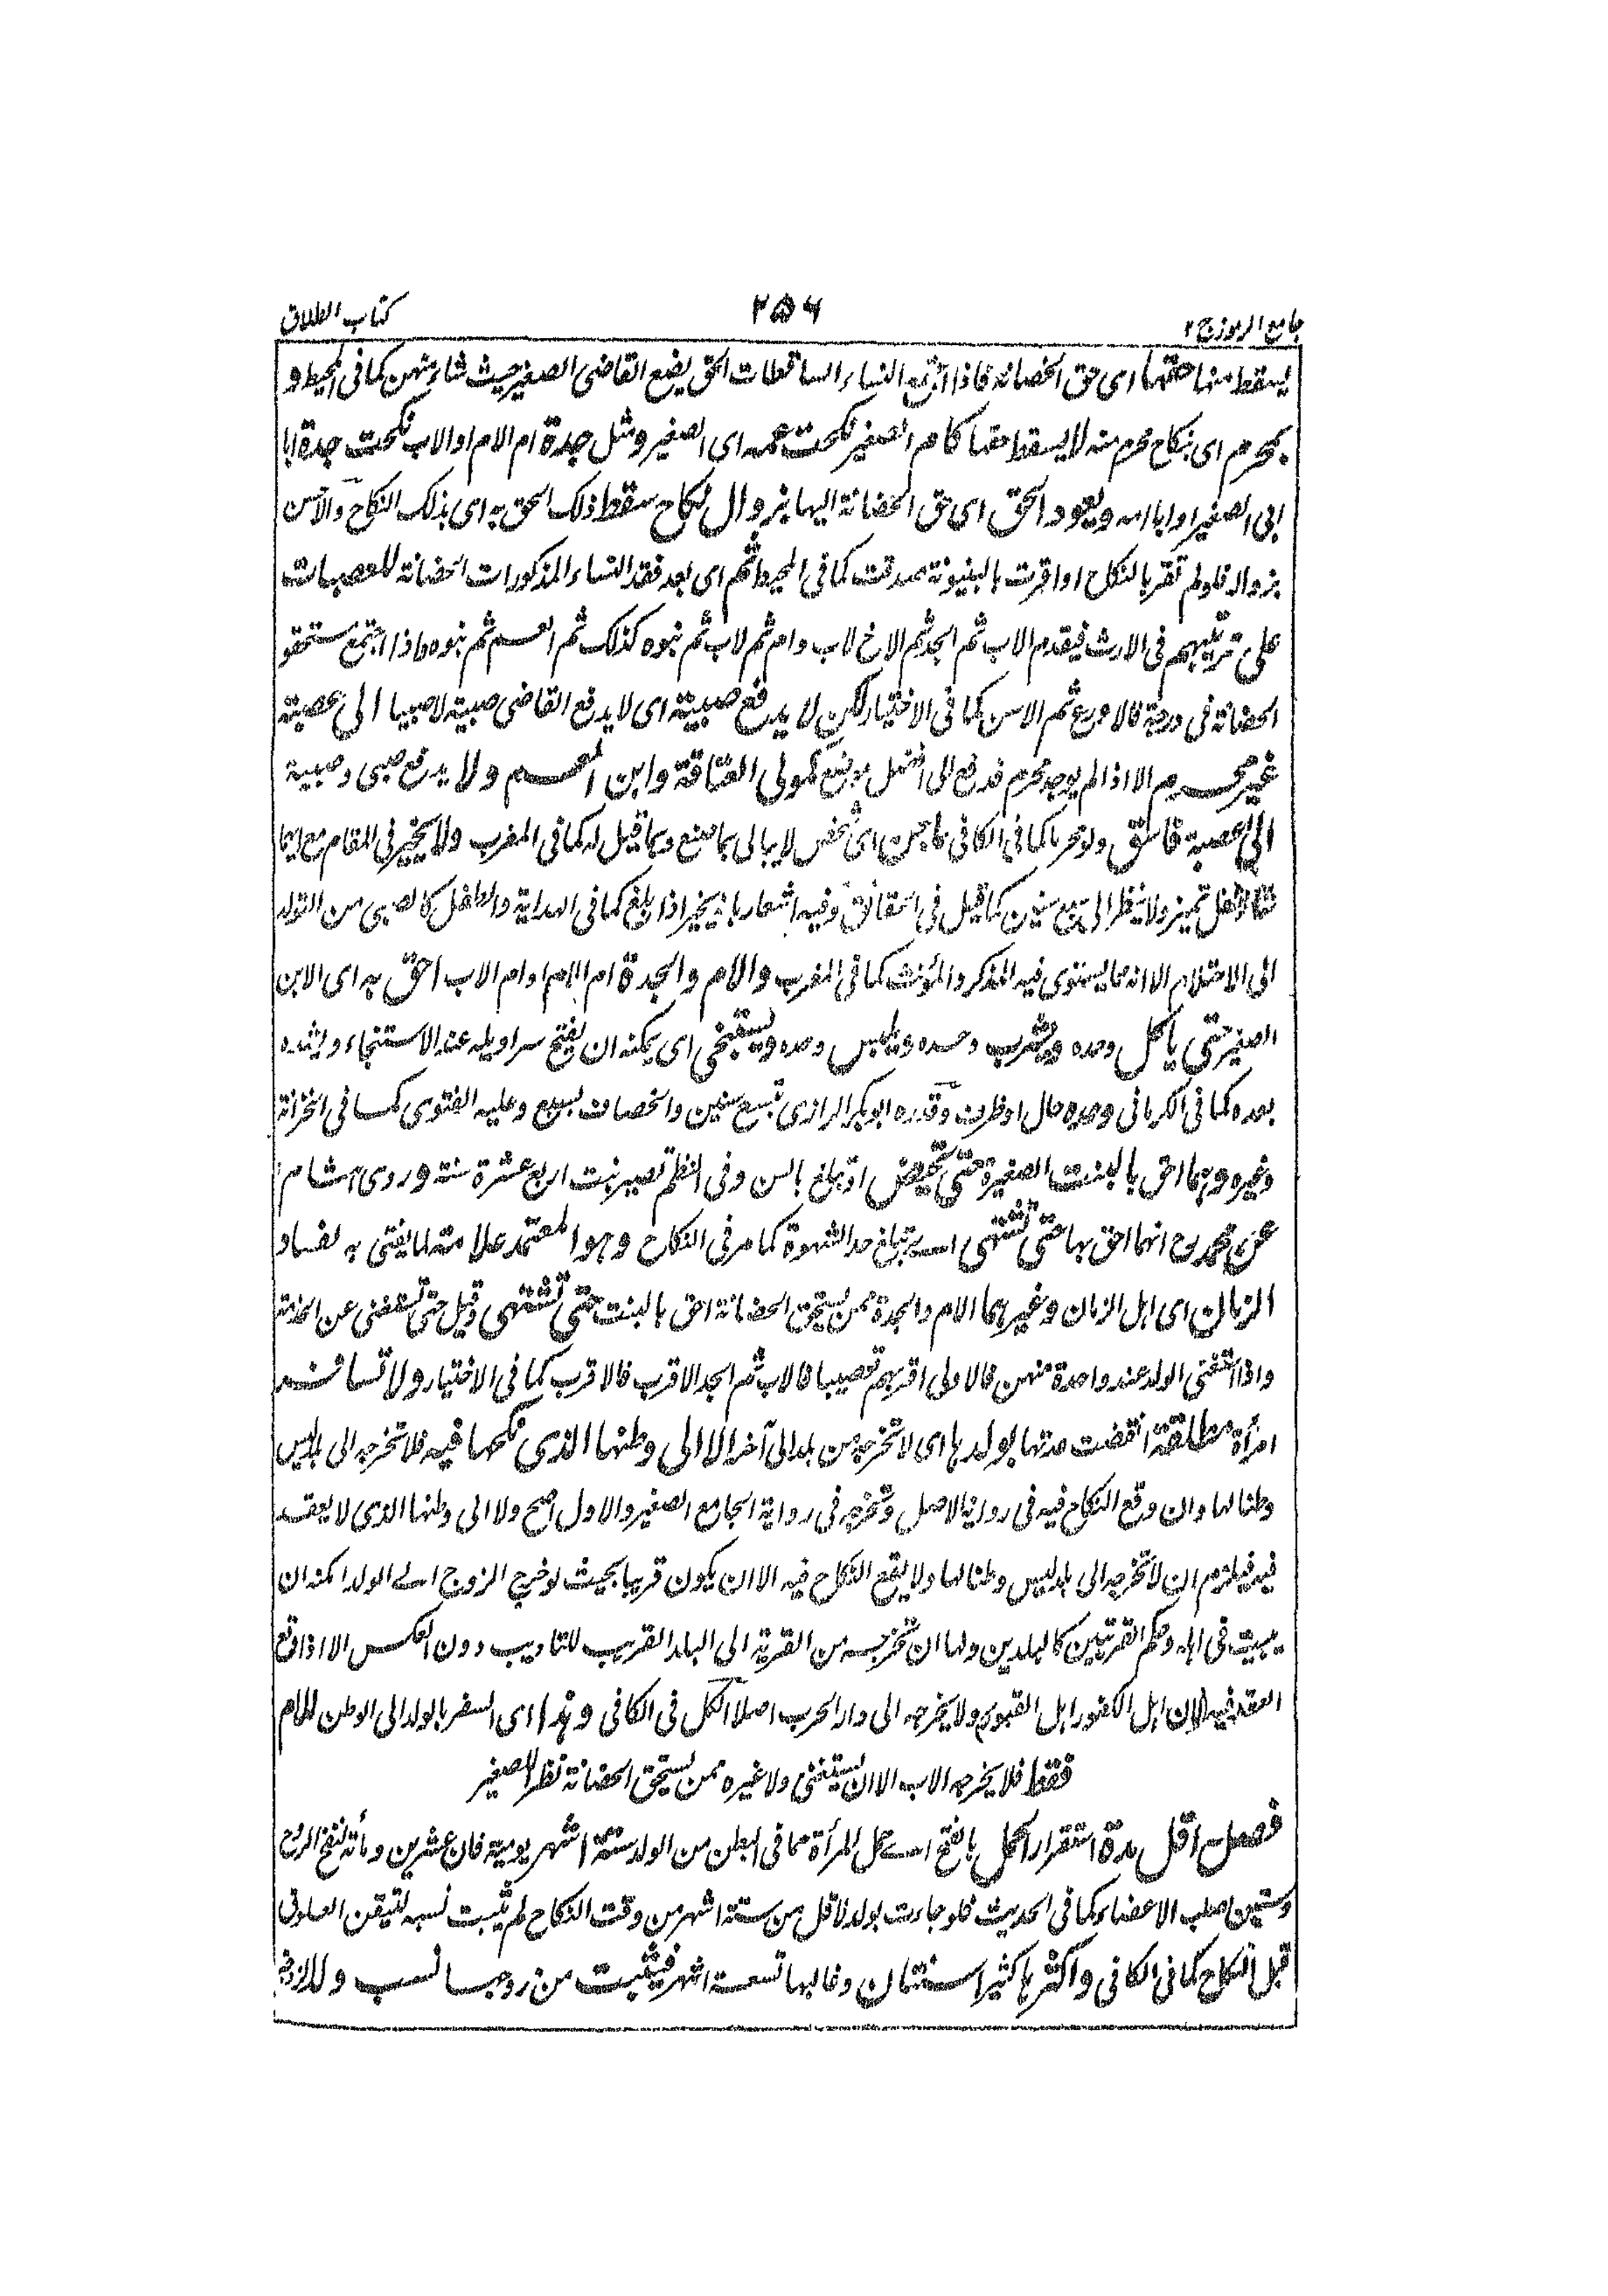 جامع الرموز ج ٢
٢٥٦
كتاب الطلاق
يسقط منها حقها اى حق الحضانة فاذا اجتمع النساء الساقطات الحق يضع القاضى الصغير حيث شاء منهن كما فى المحيط و
بمحرم اى بنكاح محرم منه لا يسقط حقها كام الصغير نكحت عمه اى الصغير ومثل جدة ام الام او الاب نكحت جده ابا
ابى الصغير او ابا امه ويعود الحق اى حق الحضانة اليها بزوال نكاح سقط ذلك الحق به اى بذلك النكاح والاحسن
بزواله فلو لم تقر بالنكاح او اقرت بالبينونة صدقت كما فى المحيط ثم اى بعد فقد النساء المذكورات الحضانة للعصبات
على ترتيبهم فى الارث فيقدم الاب ثم الجد ثم الاخ لاب وام ثم لاب ثم بنوه كذلك ثم العم ثم بنوه فاذا اجتمع مستحقو
الحضانة فى درجة فالاورع ثم الاسن كما فى الاختيار لكن لا يدفع صبية اى لا يدفع القاضى صبية لا صبيا الى عصبة
غير محرم الا اذا لم يوجد محرم فدفع الى افضل موضع كمولى العتاقة وابن العم ولا يدفع صبى وصبية
الى عصبة فاسق ولو محرما كما فى الكافى ماجن اى شخص لا يبالى بما صنع وبما قيل له كما فى المغرب ولا يخير فى المقام مع ايما
شاء طفل تميز ولا ينظر الى سبع سنين كما قيل فى الحقائق وفيه اشعار بانه يخير اذا بلغ كما فى الهداية والطفل كالصبى من التولد
الى الاحتلام الا انه مما يستوى فيه المذكر والمؤنث كما فى المغرب والام والجدة ام الام او ام الاب احق به اى الابن
الصغير حتى ياكل وحده ويشرب وحده ويلبس وحده ويستنجى اى يمكنه ان يفتح سراويله عند الاستنجاء ويشده
بعده كما فى الكرمانى وحده حال او ظرف وقدره ابو بكر الرازى بتسع سنين والخصاف بسبع وعليه الفتوى كما فى الخزانة
وغيره وبهما احق بالبنت الصغيرة حتى تحيض او تبلغ بالسن وفى النظم تصير بنت اربع عشرة سنة وروى هشام
عن محمد رح انهما احق بها حتى تشتهى اے تبلغ حد الشهوة كما مر فى النكاح وهو المعتمد علامة لما يفتى به لفساد
الزمان اى اهل الزمان وغيرهما الام والجدة ممن يستحق الحضانة احق بالبنت حتى تشتهى وقيل حتى تستغنى عن الخدمة
واذا استغنى الولد عند واحدة منهن فالاولى اقربهم تعصيبا فالاب ثم الجد الاقرب فالاقرب كما فى الاختيار ولا تسافر
امرأة مطلقة انقضت عدتها بولدها اى لا تخرجه من بلد الى آخر الا الى وطنها الذى نكحها فيه فلا تخرجه الى بلد ليس
وطنا لها وان وقع النكاح فيه فى رواية الاصل وتخرجه فى رواية الجامع الصغير والاول اصح ولا الى وطنها الذى لا يعقد
فيه فيلزم ان لا تخرجه الى بلد ليس وطنا لها ولا يقع النكاح فيه الا ان يكون قريبا بحيث لو خرج الزوج اے الولد امكنه ان
يبيت فى اهله وحكم القريتين كالبلدين ولها ان تخرجه من القرية الى البلد القريب للتاديب دون العكس الا اذا وقع
العقد فيه لان اهل الكفور اهل القبور ولا يخرجه الى دار الحرب اصلا الكل فى الكافى وهذا اى السفر بالولد الى الوطن للام
فقط فلا يخرجه الاب الا ان يستغنى ولا غيره ممن يستحق الحضانة نظرا للصغير
فصل اقل مدة استقرار الحمل بالفتح اے حمل المرأة مما فى البطن من الولد ستة اشهر يومية فان عشرين ومأة لنفخ الروح
وستين لصلب الاعضاء كما فى الحديث فلو جاءت بولد لاقل من ستة اشهر من وقت النكاح لم يثبت نسبه لتيقن العلوق
قبل النكاح كما فى الكافى واكثرها كثيرا سنتان وغالبها تسعة اشهر فيثبت من زوجها نسب ولد